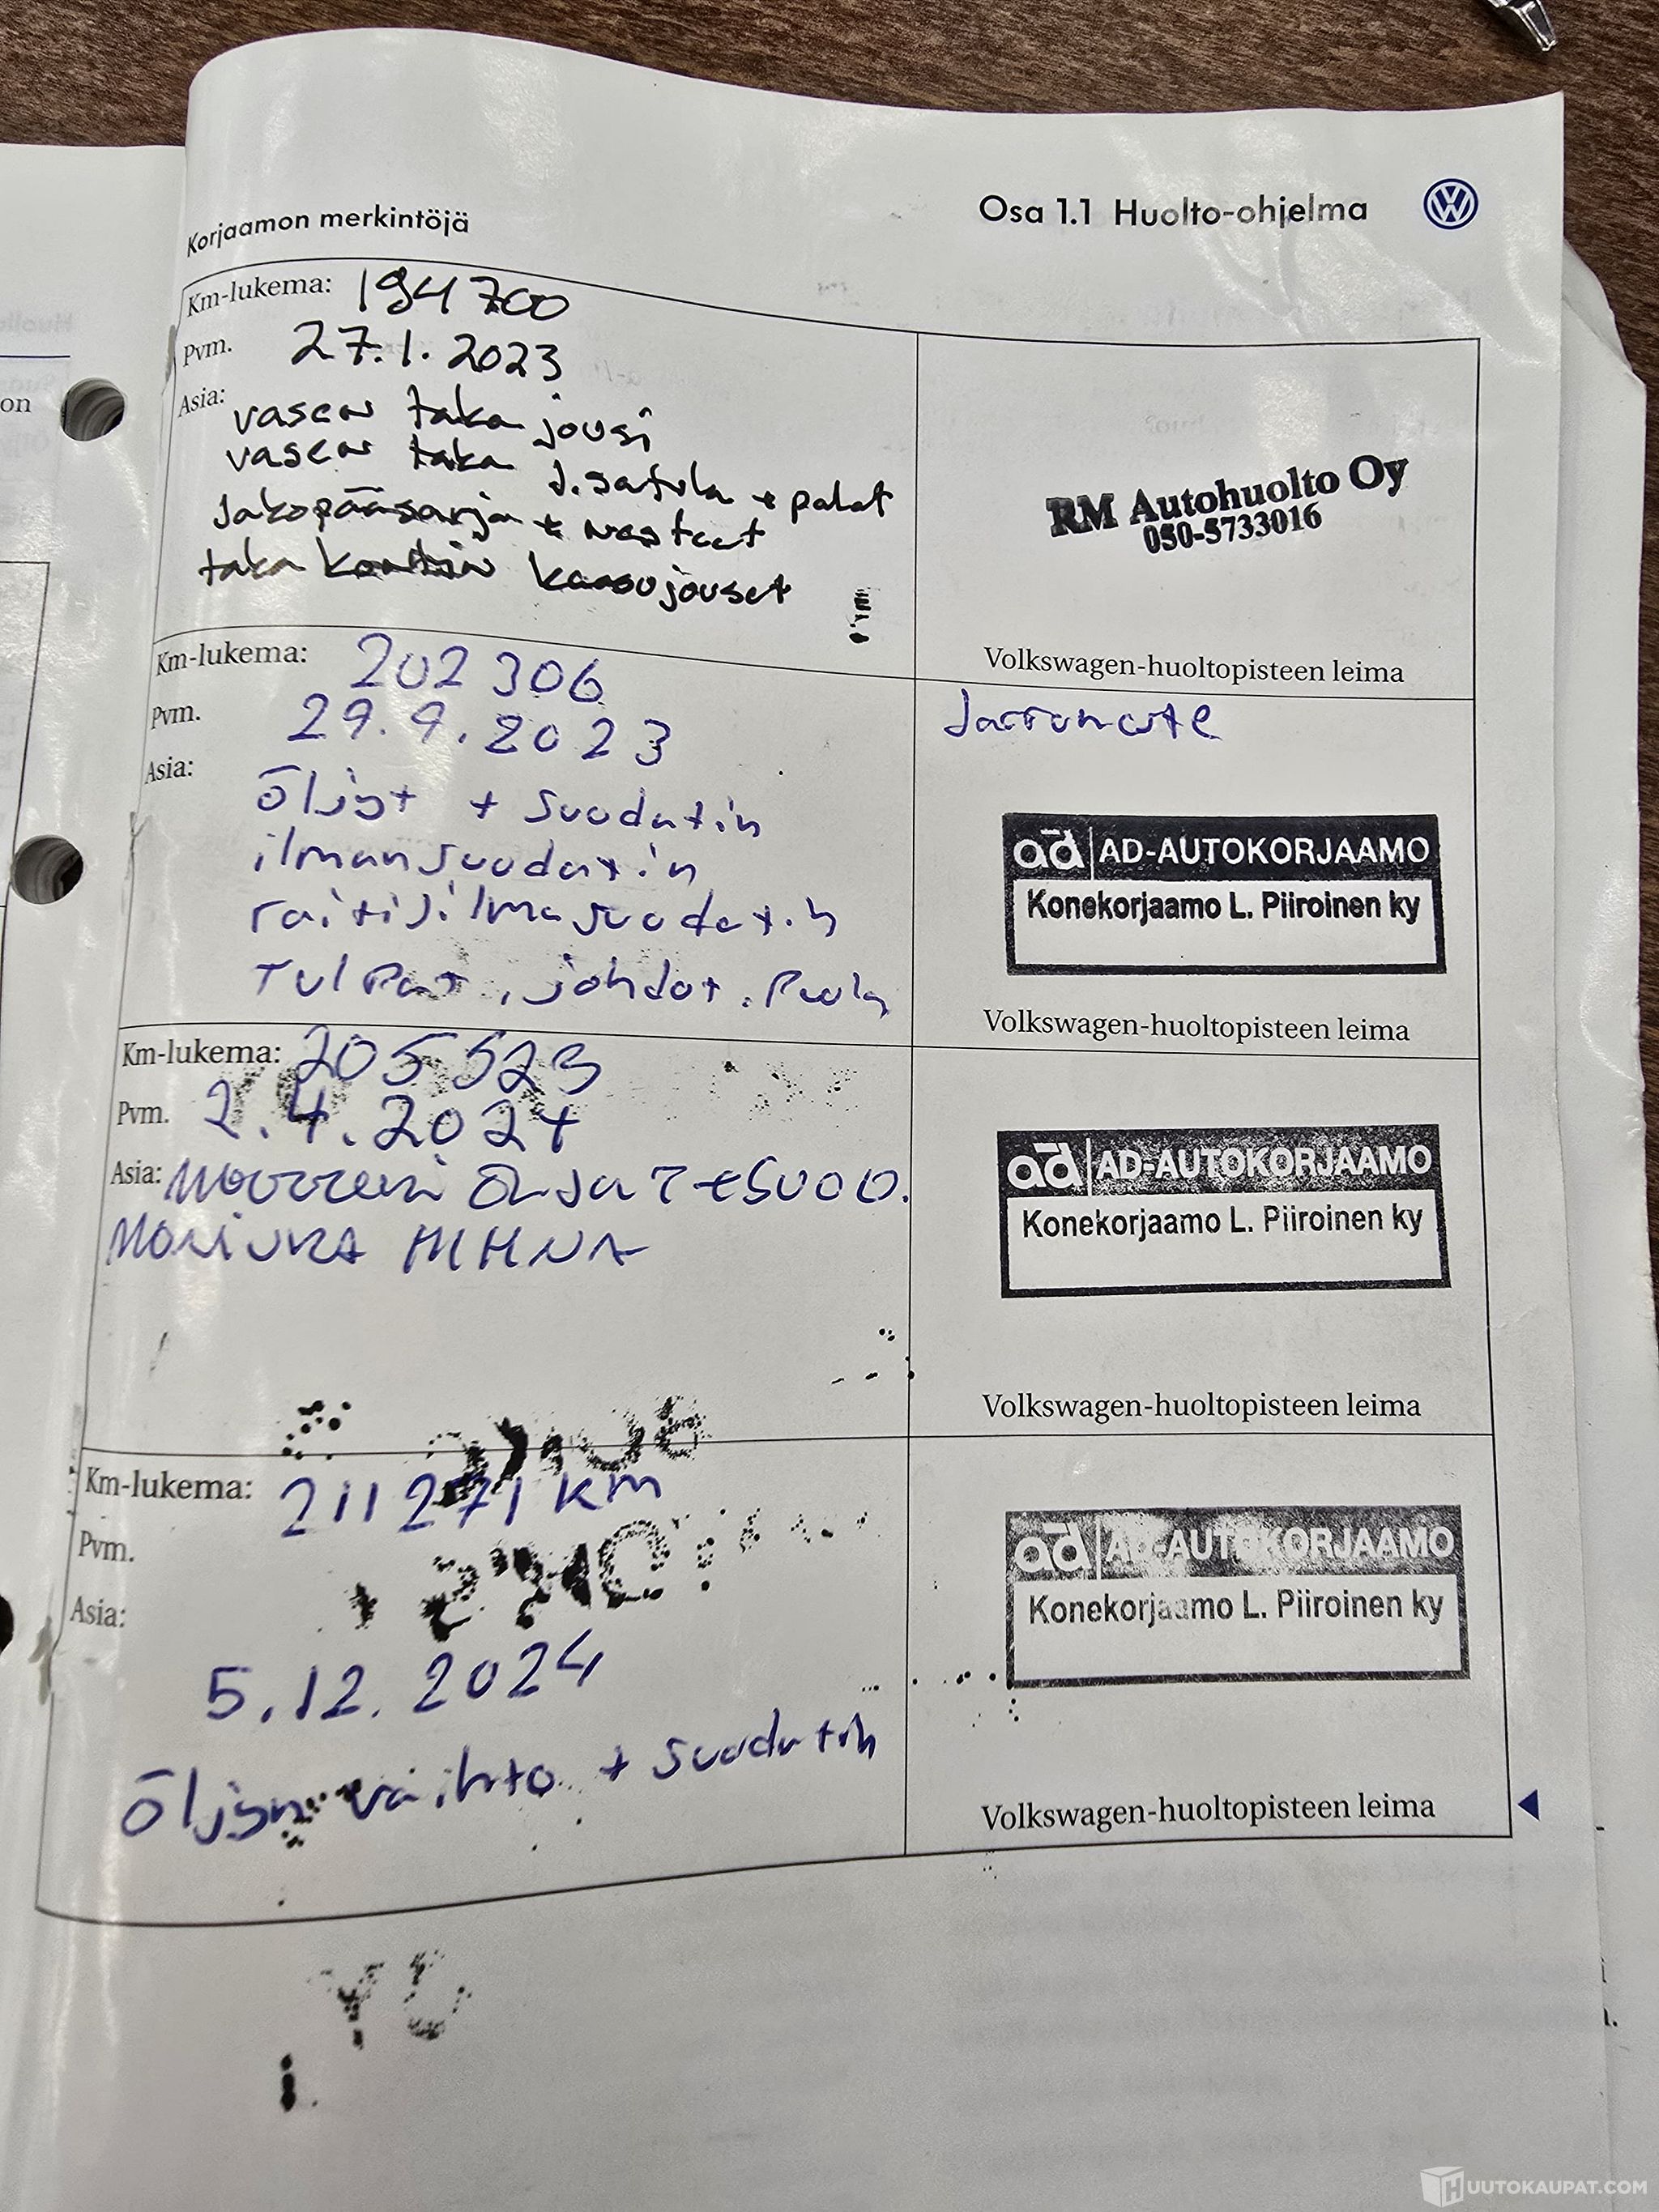 Korjaamon merkintöjä
Osa 1.1 Huolto-ohjelma
on
Km-lukema: 194700
Pvm. 27.1.2023
Asia: vasen taka jousi
vasen taka J.satula + palat
Jakopääsarja + nesteet
taka kontin kaasujouset
RM Autohuolto Oy
050-5733016
Volkswagen-huoltopisteen leima
Km-lukema: 202 306
Pvm. 29.9.2023
Asia:
öljyt + suodatin
ilmansuodatin
raitisilmasuodatin
Tulpat, johdot, Puola
Jarruneste
ad AD-AUTOKORJAAMO
Konekorjaamo L. Piiroinen ky
Volkswagen-huoltopisteen leima
Km-lukema: 205 523
Pvm. 2.4.2024
Asia: MOOTTORIN ÖLJYT + SUOD.
MONIURA HIHNA
ad AD-AUTOKORJAAMO
Konekorjaamo L. Piiroinen ky
Volkswagen-huoltopisteen leima
Km-lukema: 211 271 km
Pvm.
Asia:
5.12.2024
Öljyn vaihto + suodatin
ad AD-AUTOKORJAAMO
Konekorjaamo L. Piiroinen ky
Volkswagen-huoltopisteen leima
HUUTOKAUPAT.COM